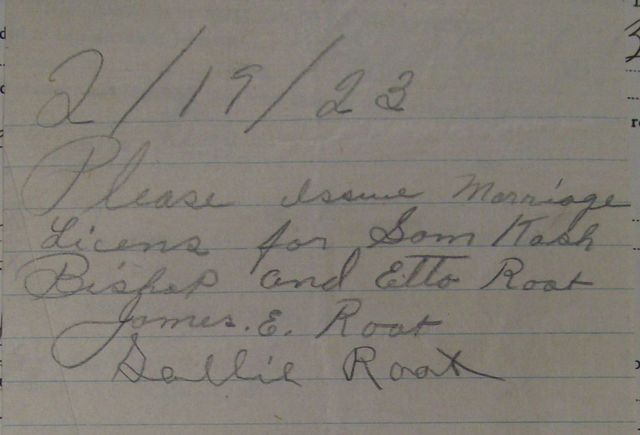 2/19/23
Please issue Marriage
Licens for Sam Kash
Bishop and Etta Root
James. E. Root
Sallie Root